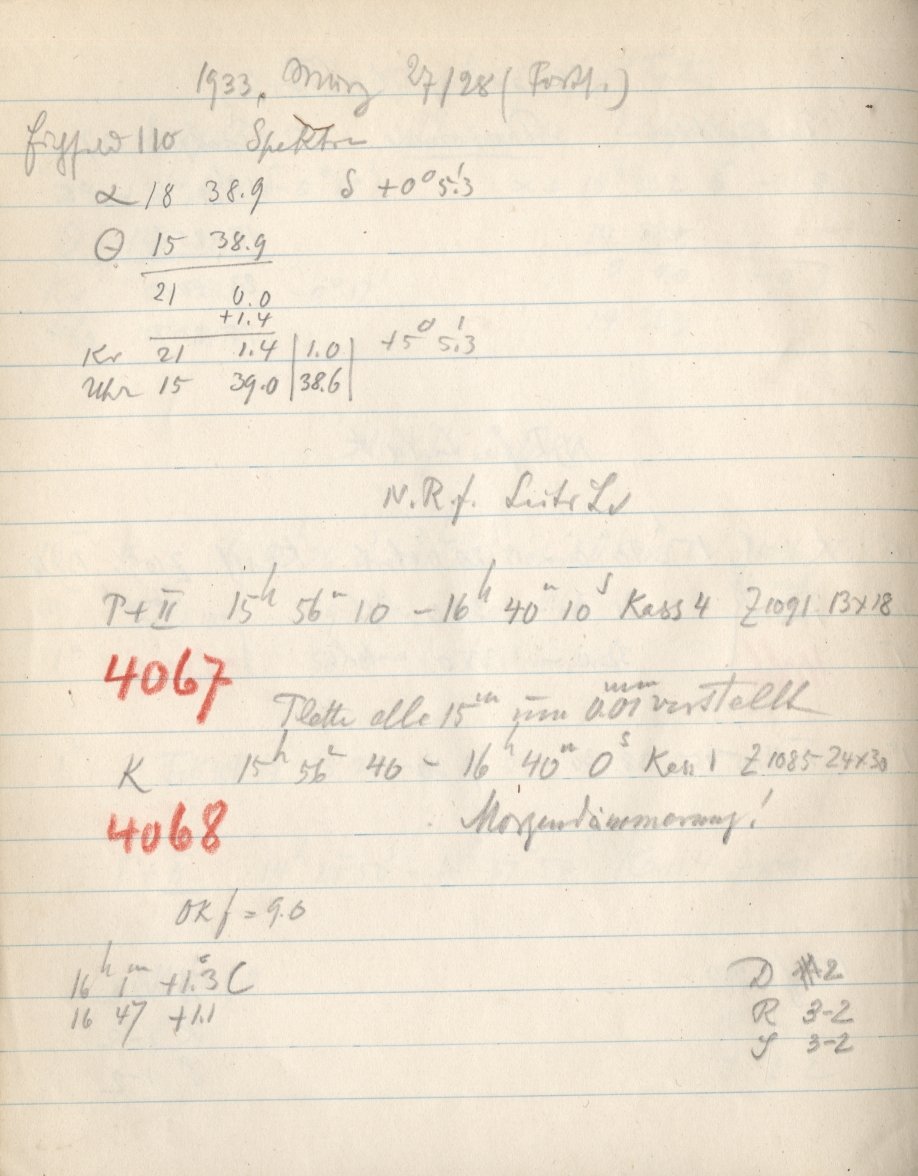 1933, März 27/28 (Forts.)
Eichfeld 110 Spektren
α 18 38.9 δ +0° 5!3
Θ 15 38.9
21 0.0
+1.4
Kr 21 1.4 | 1.0 | +5° 5!3
Uhr 15 39.0 | 38.6 |
N.R.f.
P+II 15h 56m 10 – 16h 40m 10s Kass 4 Z1091 13x18
4067
Platte alle 15m um 0.01mm verstellt
K 15h 56m 40 – 16h 40m 0s Kass 1 Z1085 24x30
4068
Morgendämmerung!
OKf = 9.0
16h 1m +1.°3 C
16 47 +1.1
D 2
R 3-2
S 3-2